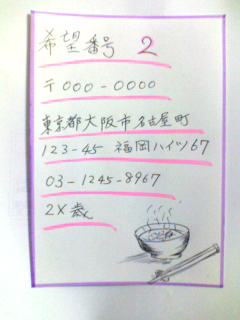 希望番号 2
〒000-0000
東京都大阪市名古屋町
123-45 福岡ハイツ67
03-1245-8967
2X歳